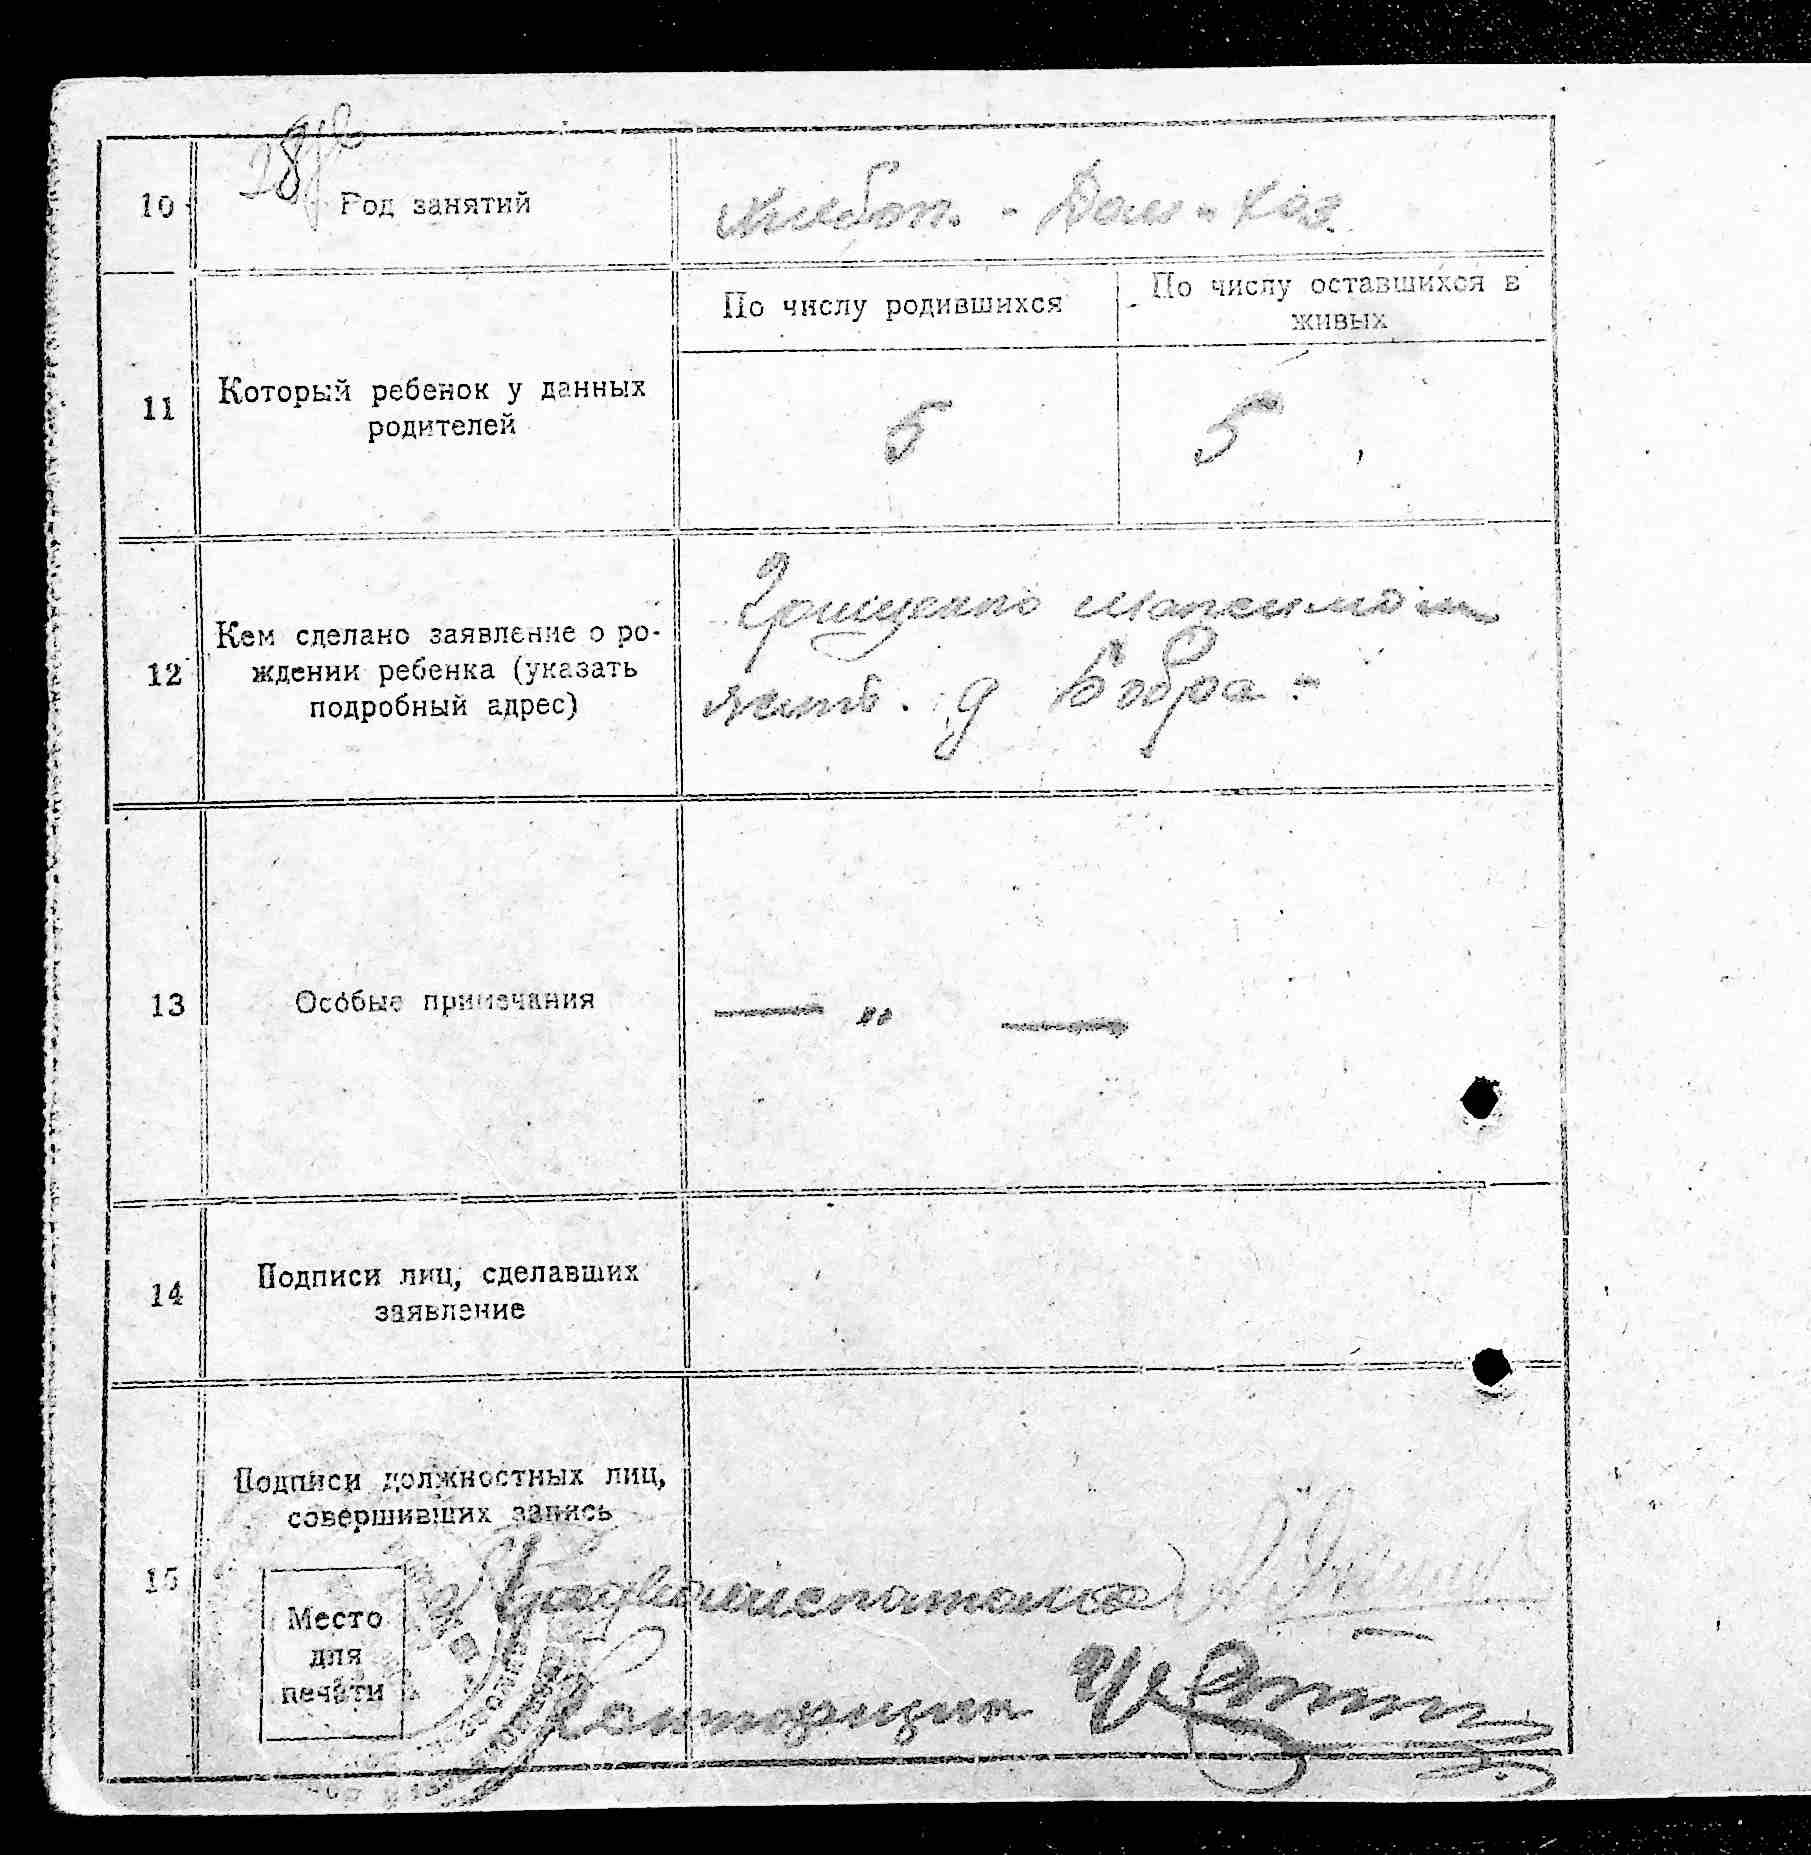 10 Род занятий
Хлебоп. - Дом - хоз
11 Который ребенок у данных
родителей
По числу родившихся
По числу оставшихся в
живых
5
5
12 Кем сделано заявление о ро-
ждении ребенка (указать
подробный адрес)
Грищенко Максимом
жит. д Бобра -
13 Особые примечания
— " —
14 Подписи лиц, сделавших
заявление
15 Подписи должностных лиц,
совершивших запись
Место
для
печати
Конторщик